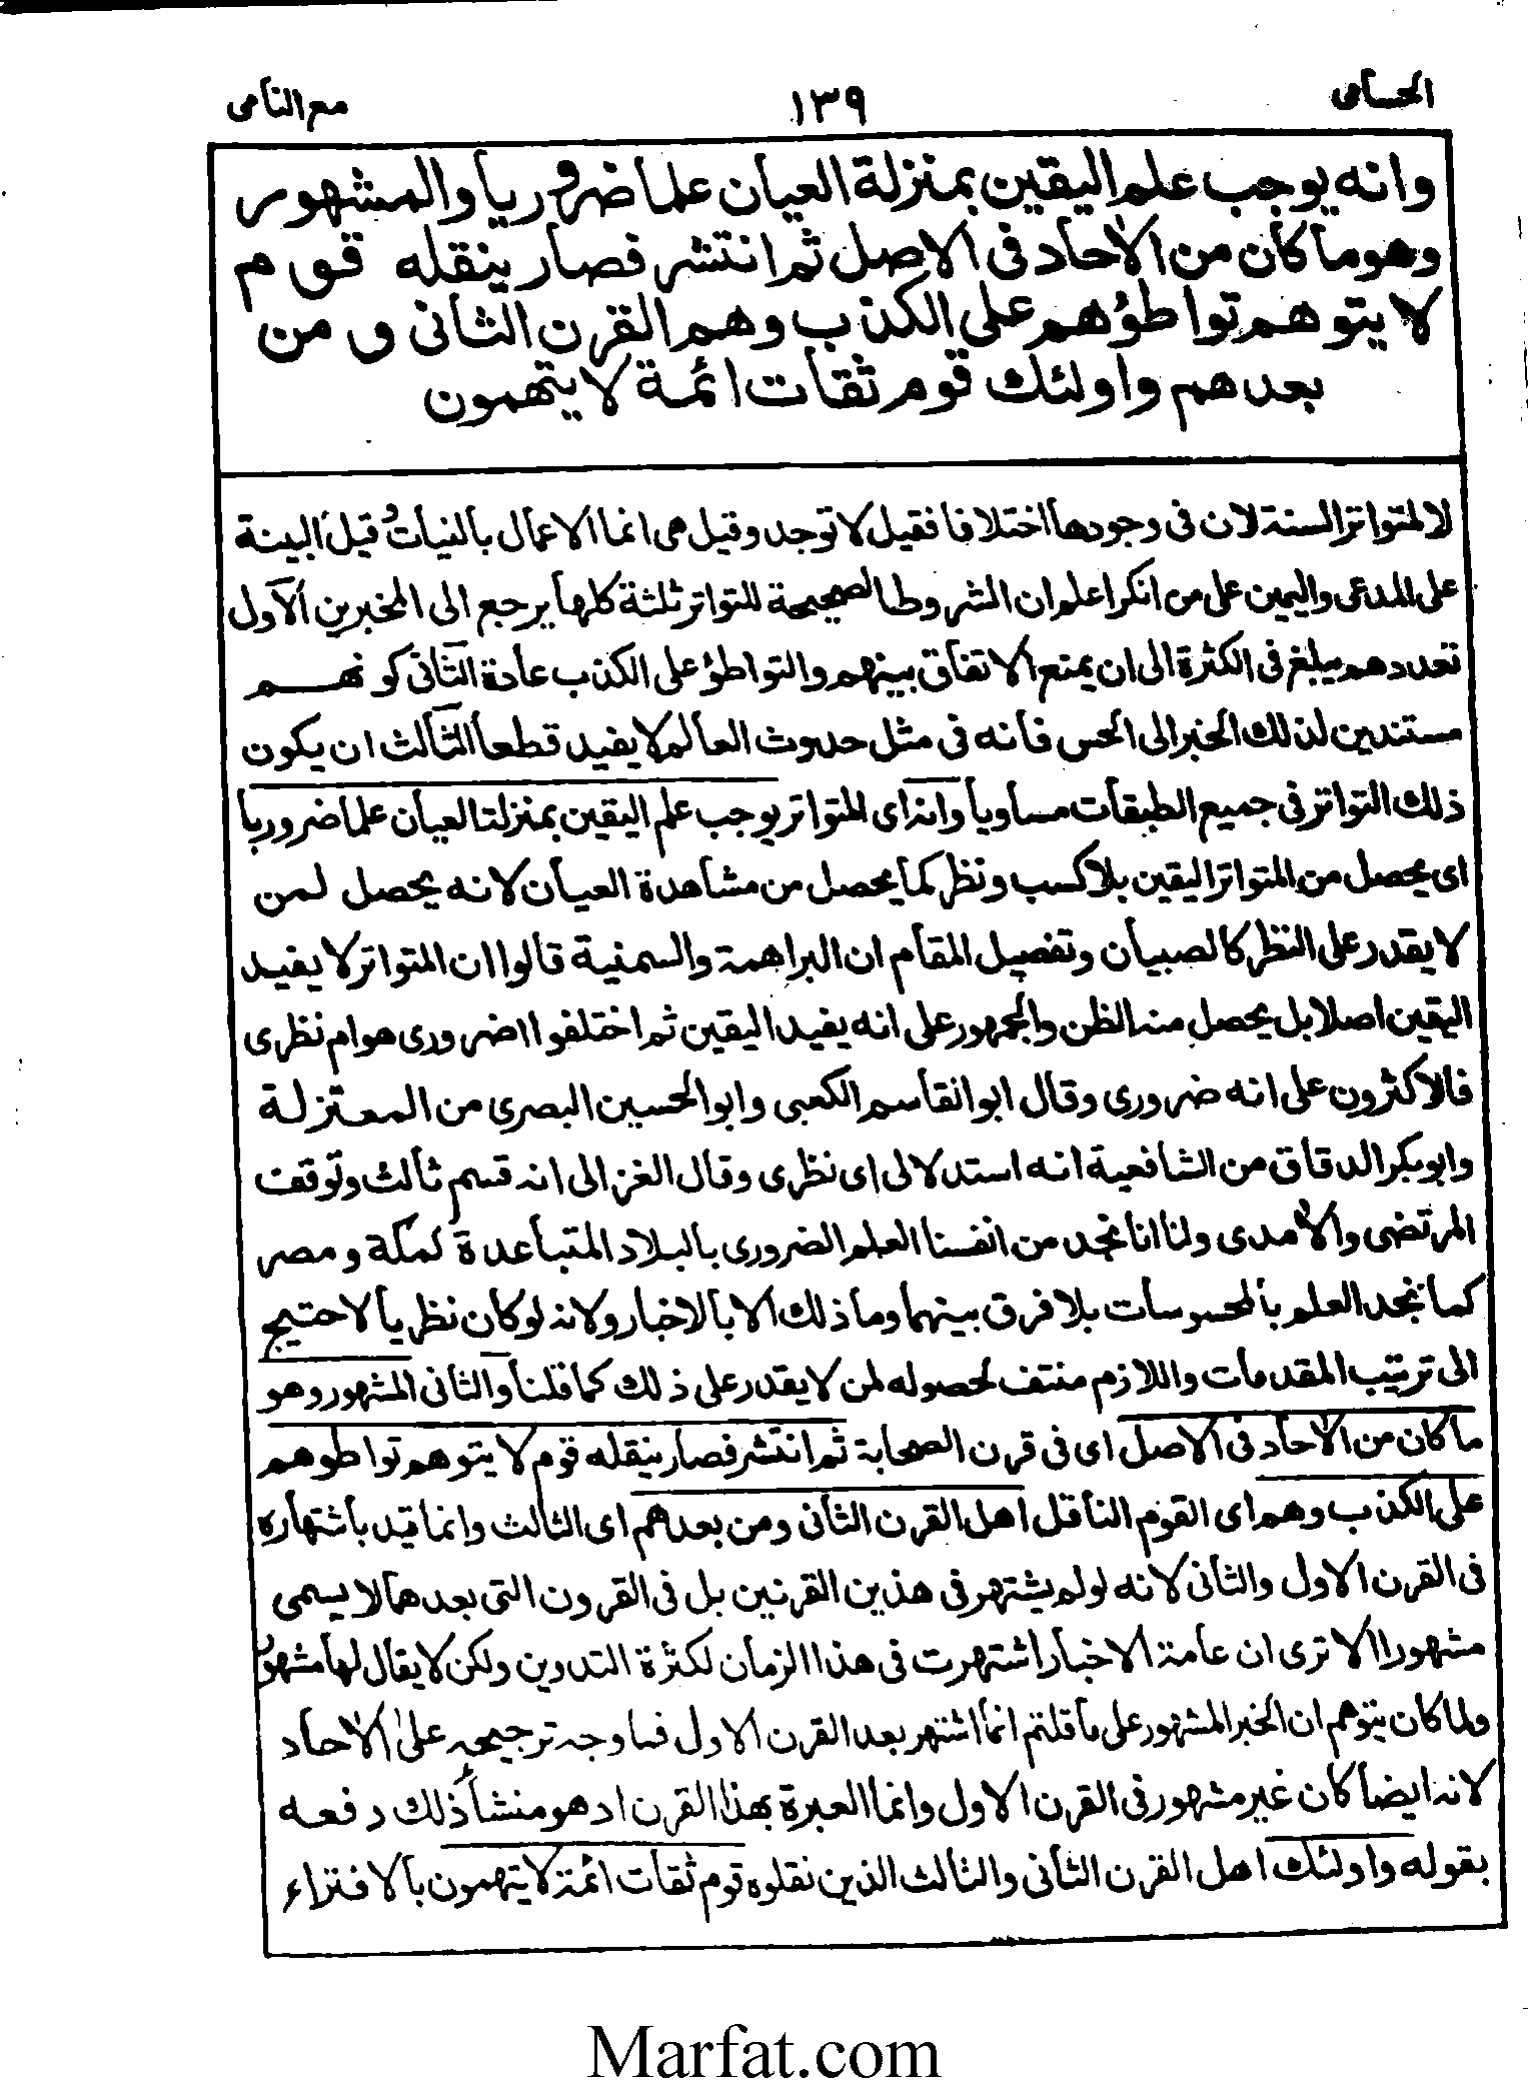 الحسامى ١٣٩ مع النامى
وانه يوجب علم اليقين بمنزلة العيان علما ضروريا والمشهور
وهو ما كان من الآحاد فى الاصل ثم انتشر فصار ينقله قوم
لا يتوهم تواطؤهم على الكذب وهم القرن الثانى ومن
بعدهم واولئك قوم ثقات ائمة لا يتهمون
لا لمتواتر السنة لان فى وجودها اختلافا فقيل لا توجد وقيل هى انما الاعمال بالنيات وقيل البينة
على المدعى واليمين على من انكر اعلم ان الشروط الصحيحة للتواتر ثلثة كلها يرجع الى المخبرين الاول
تعددهم يبلغ فى الكثرة الى ان يمتنع الاتفاق بينهم والتواطؤ على الكذب عادة الثانى كونهم
مستندين لذلك الخبر الى الحس فانه فى مثل حدوث العالم لا يفيد قطعا الثالث ان يكون
ذلك التواتر فى جميع الطبقات مساويا وانه اى المتواتر يوجب علم اليقين بمنزلة العيان علما ضروريا
اى يحصل من المتواتر اليقين بلا كسب ونظر كما يحصل من مشاهدة العيان لانه يحصل لمن
لا يقدر على النظر كالصبيان وتفصيل المقام ان البراهمة والسمنية قالوا ان المتواتر لا يفيد
اليقين اصلا بل يحصل منه الظن والجمهور على انه يفيد اليقين ثم اختلفوا اضرورى هو ام نظرى
فالاكثرون على انه ضرورى وقال ابو القاسم الكعبى وابو الحسين البصرى من المعتزلة
وابو بكر الدقاق من الشافعية انه استدلالى اى نظرى وقال الغزالى انه قسم ثالث وتوقف
المرتضى والآمدى ولنا انا نجد من انفسنا العلم الضرورى بالبلاد المتباعدة كمكة ومصر
كما نجد العلم بالمحسوسات بلا فرق بينهما وما ذلك الا بالاخبار ولانه لو كان نظريا لاحتيج
الى ترتيب المقدمات واللازم منتف لحصوله لمن لا يقدر على ذلك كما قلنا والثانى المشهور وهو
ما كان من الآحاد فى الاصل اى فى قرن الصحابة ثم انتشر فصار ينقله قوم لا يتوهم تواطوهم
على الكذب وهم اى القوم الناقل اهل القرن الثانى ومن بعدهم اى الثالث وانما قيد باشتهاره
فى القرن الاول والثانى لانه لو لم يشتهر فى هذين القرنين بل فى القرون التى بعدها لا يسمى
مشهورا الا ترى ان عامة الاخبار اشتهرت فى هذا الزمان لكثرة التدوين ولكن لا يقال لها مشهور
ولما كان يتوهم ان الخبر المشهور على ما قلتم انما اشتهر بعد القرن الاول فما وجه ترجيحه على الآحاد
لانه ايضا كان غير مشهور فى القرن الاول وانما العبرة بهذا القرن اذ هو منشأ ذلك دفعه
بقوله واولئك اهل القرن الثانى والثالث الذين نقلوه قوم ثقات ائمة لا يتهمون بالافتراء
Marfat.com